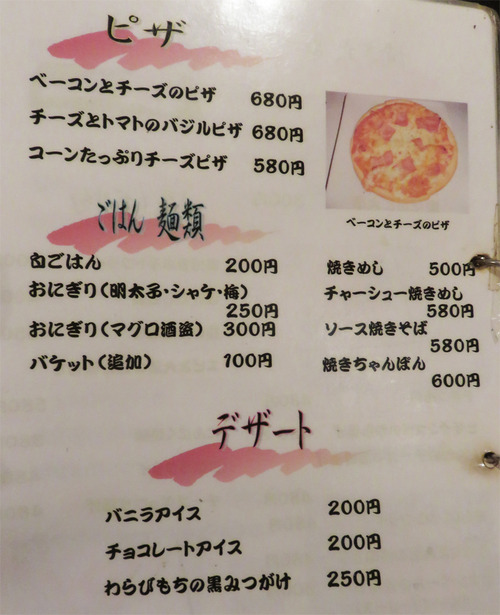 ピザ
ベーコンとチーズのピザ 680円
チーズとトマトのバジルピザ 680円
コーンたっぷりチーズピザ 580円
ベーコンとチーズのピザ
ごはん 麺類
白ごはん 200円
おにぎり(明太子・シャケ・梅)
250円
おにぎり(マグロ酒盗) 300円
バケット(追加) 100円
焼きめし 500円
チャーシュー焼きめし
580円
ソース焼きそば
580円
焼きちゃんぽん
600円
デザート
バニラアイス 200円
チョコレートアイス 200円
わらびもちの黒みつがけ 250円